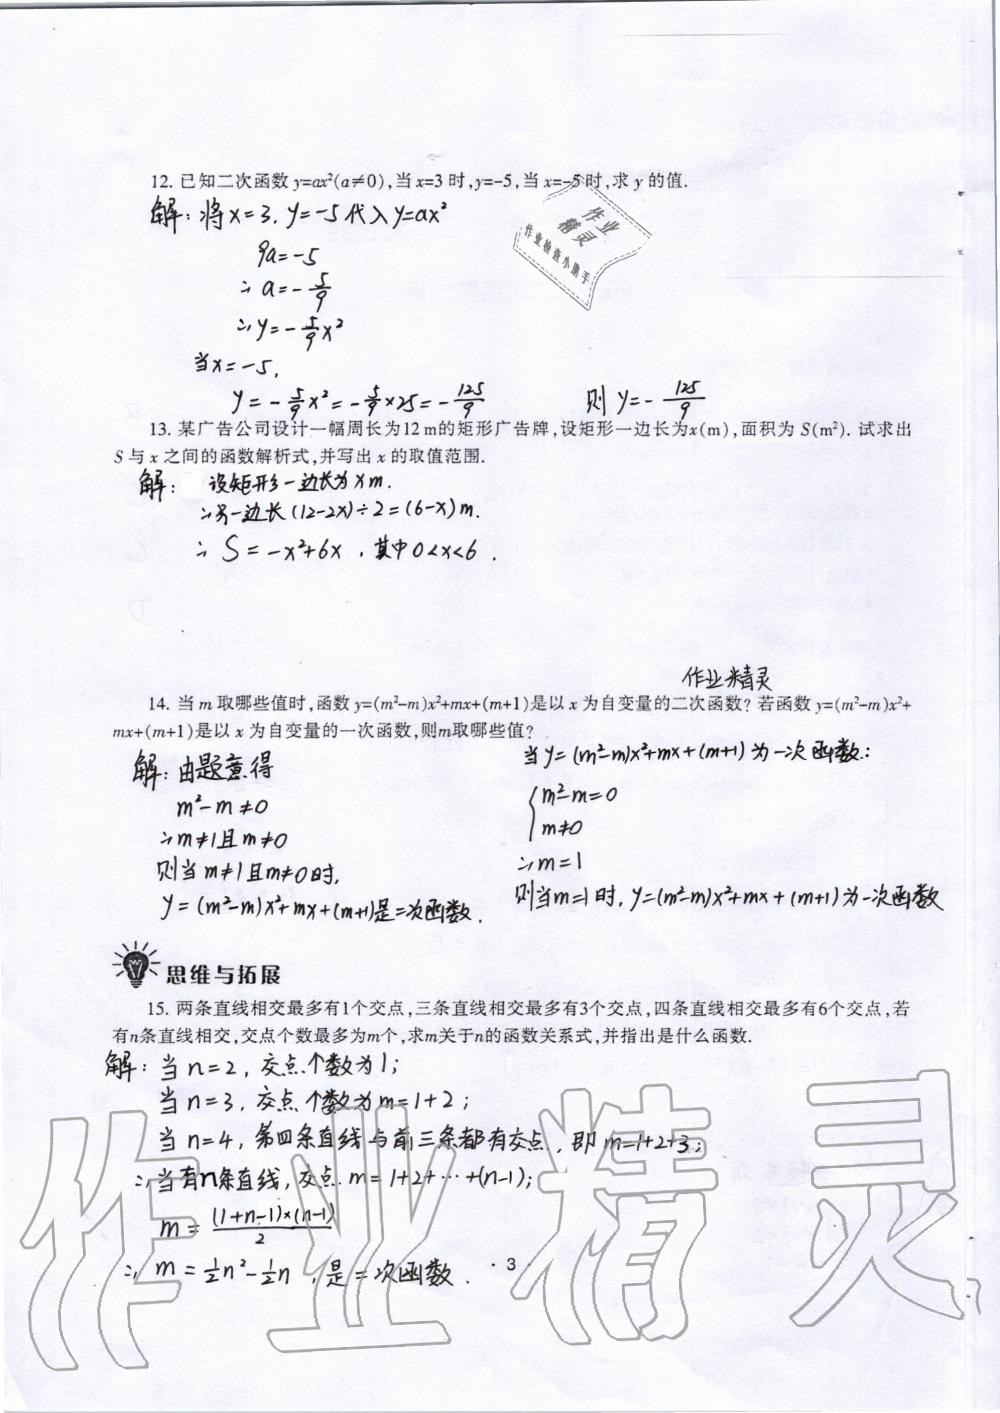 12. 已知二次函数 y=ax²(a≠0),当 x=3 时,y=-5,当 x=-5时,求 y 的值.
解：将x=3, y=-5代入y=ax²
作业
精灵
作业检查小助手
9a=-5
∴a=-5/9
∴y=-5/9x²
当x=-5,
y=-5/9x²=-5/9×25=-125/9 则 y=-125/9
13. 某广告公司设计一幅周长为12 m的矩形广告牌,设矩形一边长为x(m),面积为 S(m²). 试求出
S 与 x 之间的函数解析式,并写出 x 的取值范围.
解： 设矩形一边长为 x m.
∴另一边长(12-2x)÷2=(6-x)m.
∴ S=-x²+6x ,其中0<x<6 .
作业精灵
14. 当 m 取哪些值时,函数 y=(m²-m)x²+mx+(m+1)是以 x 为自变量的二次函数? 若函数 y=(m²-m)x²+
mx+(m+1)是以 x 为自变量的一次函数,则m取哪些值?
解：由题意得
m²-m≠0
∴m≠1且m≠0
则当m≠1且m≠0时,
y=(m²-m)x²+mx+(m+1)是二次函数.
当y=(m²-m)x²+mx+(m+1)为一次函数:
{m²-m=0
m≠0
∴m=1
则当m=1时, y=(m²-m)x²+mx+(m+1)为一次函数
思维与拓展
15. 两条直线相交最多有1个交点,三条直线相交最多有3个交点,四条直线相交最多有6个交点,若
有n条直线相交,交点个数最多为m个,求m关于n的函数关系式,并指出是什么函数.
解：当n=2, 交点个数为1;
当n=3, 交点个数为m=1+2;
当n=4, 第四条直线与前三条都有交点, 即m=1+2+3;
∴当有n条直线,交点 m=1+2+…+(n-1);
m=(1+n-1)×(n-1)/2
∴ m=1/2n²-1/2n ,是二次函数.
· 3 ·
作业精灵